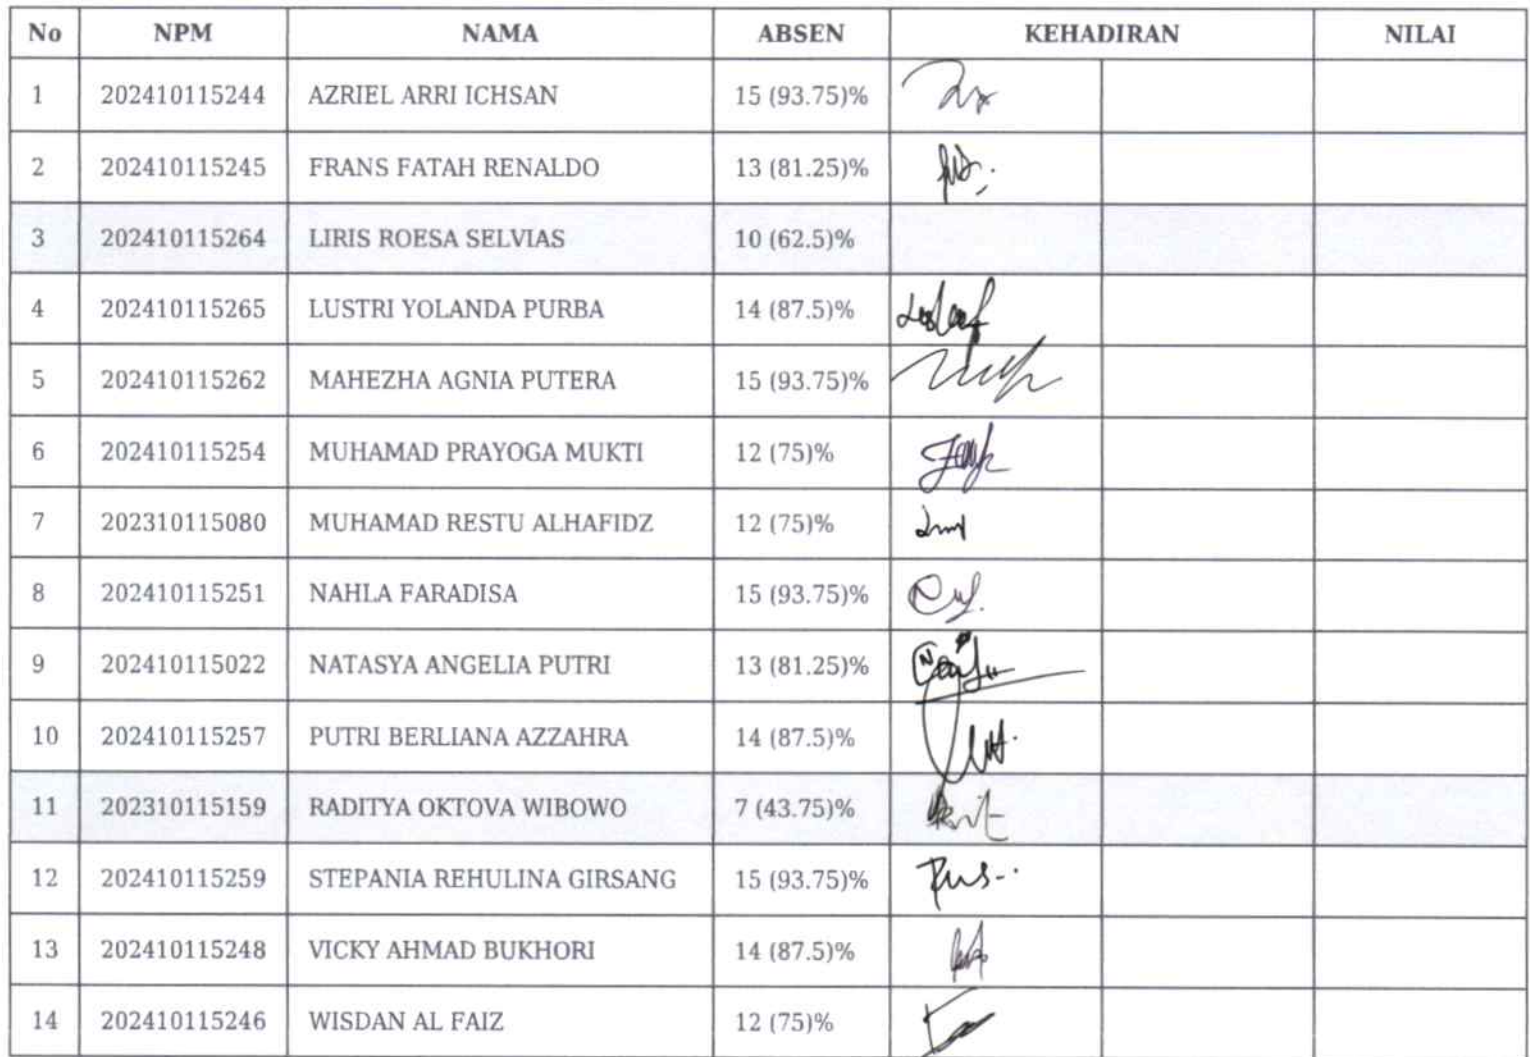 No NPM NAMA ABSEN KEHADIRAN NILAI
1 202410115244 AZRIEL ARRI ICHSAN 15 (93.75)%
2 202410115245 FRANS FATAH RENALDO 13 (81.25)%
3 202410115264 LIRIS ROESA SELVIAS 10 (62.5)%
4 202410115265 LUSTRI YOLANDA PURBA 14 (87.5)%
5 202410115262 MAHEZHA AGNIA PUTERA 15 (93.75)%
6 202410115254 MUHAMAD PRAYOGA MUKTI 12 (75)%
7 202310115080 MUHAMAD RESTU ALHAFIDZ 12 (75)%
8 202410115251 NAHLA FARADISA 15 (93.75)%
9 202410115022 NATASYA ANGELIA PUTRI 13 (81.25)%
10 202410115257 PUTRI BERLIANA AZZAHRA 14 (87.5)%
11 202310115159 RADITYA OKTOVA WIBOWO 7 (43.75)%
12 202410115259 STEPANIA REHULINA GIRSANG 15 (93.75)%
13 202410115248 VICKY AHMAD BUKHORI 14 (87.5)%
14 202410115246 WISDAN AL FAIZ 12 (75)%